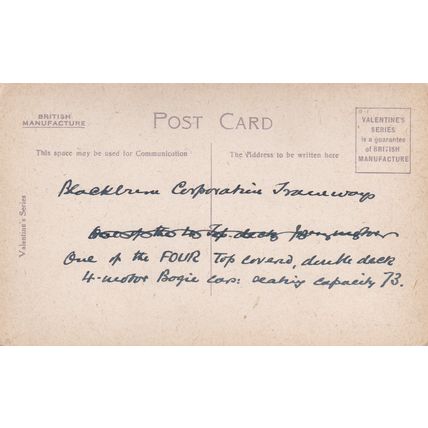 BRITISH
MANUFACTURE
POST CARD
VALENTINE'S
SERIES
is a guarantee
of BRITISH
MANUFACTURE
This space may be used for Communication
The Address to be written here
Valentine's Series
Blackburn Corporation Tramways
One of the FOUR Top covered, double deck
4-motor Bogie cars: seating capacity 73.